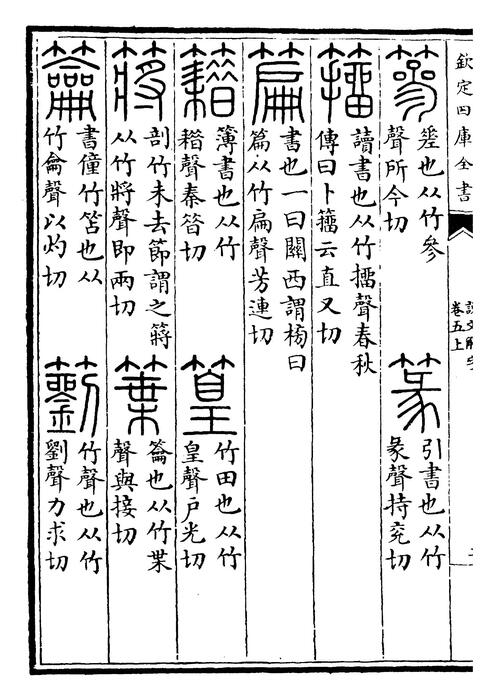 欽定四庫全書
說文解字
卷五上
篸
差也从竹參
聲所今切
篆
引書也从竹
彖聲持兖切
籕
讀書也从竹擂聲春秋
傳曰卜籕云直又切
篇
書也一曰關西謂榜曰
篇从竹扁聲芳連切
籍
簿書也从竹
耤聲秦昔切
篁
竹田也从竹
皇聲戶光切
䉃
剖竹未去節謂之䉃
从竹將聲即兩切
䈎
籥也从竹枼
聲與接切
籥
書僮竹笘也从
竹龠聲以灼切
䉧
竹聲也从竹
劉聲力求切